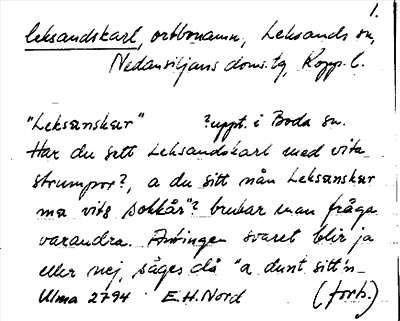 1.
Leksandskarl, ortbonamn, Leksands sn,
Nedansiljans doms.tg, Kopp. l.
"Leksanskar" ?uppt. i Boda sn.
Har du sett Leksandskarl med vita
strumpor?, a du sitt nån Leksanskar
ma vita sokkår"? brukar man fråga
varandra. Antingen svaret blir ja
eller nej, säges då "a dunt sitt'n
Ulma 2794 E.H. Nord (forts.)